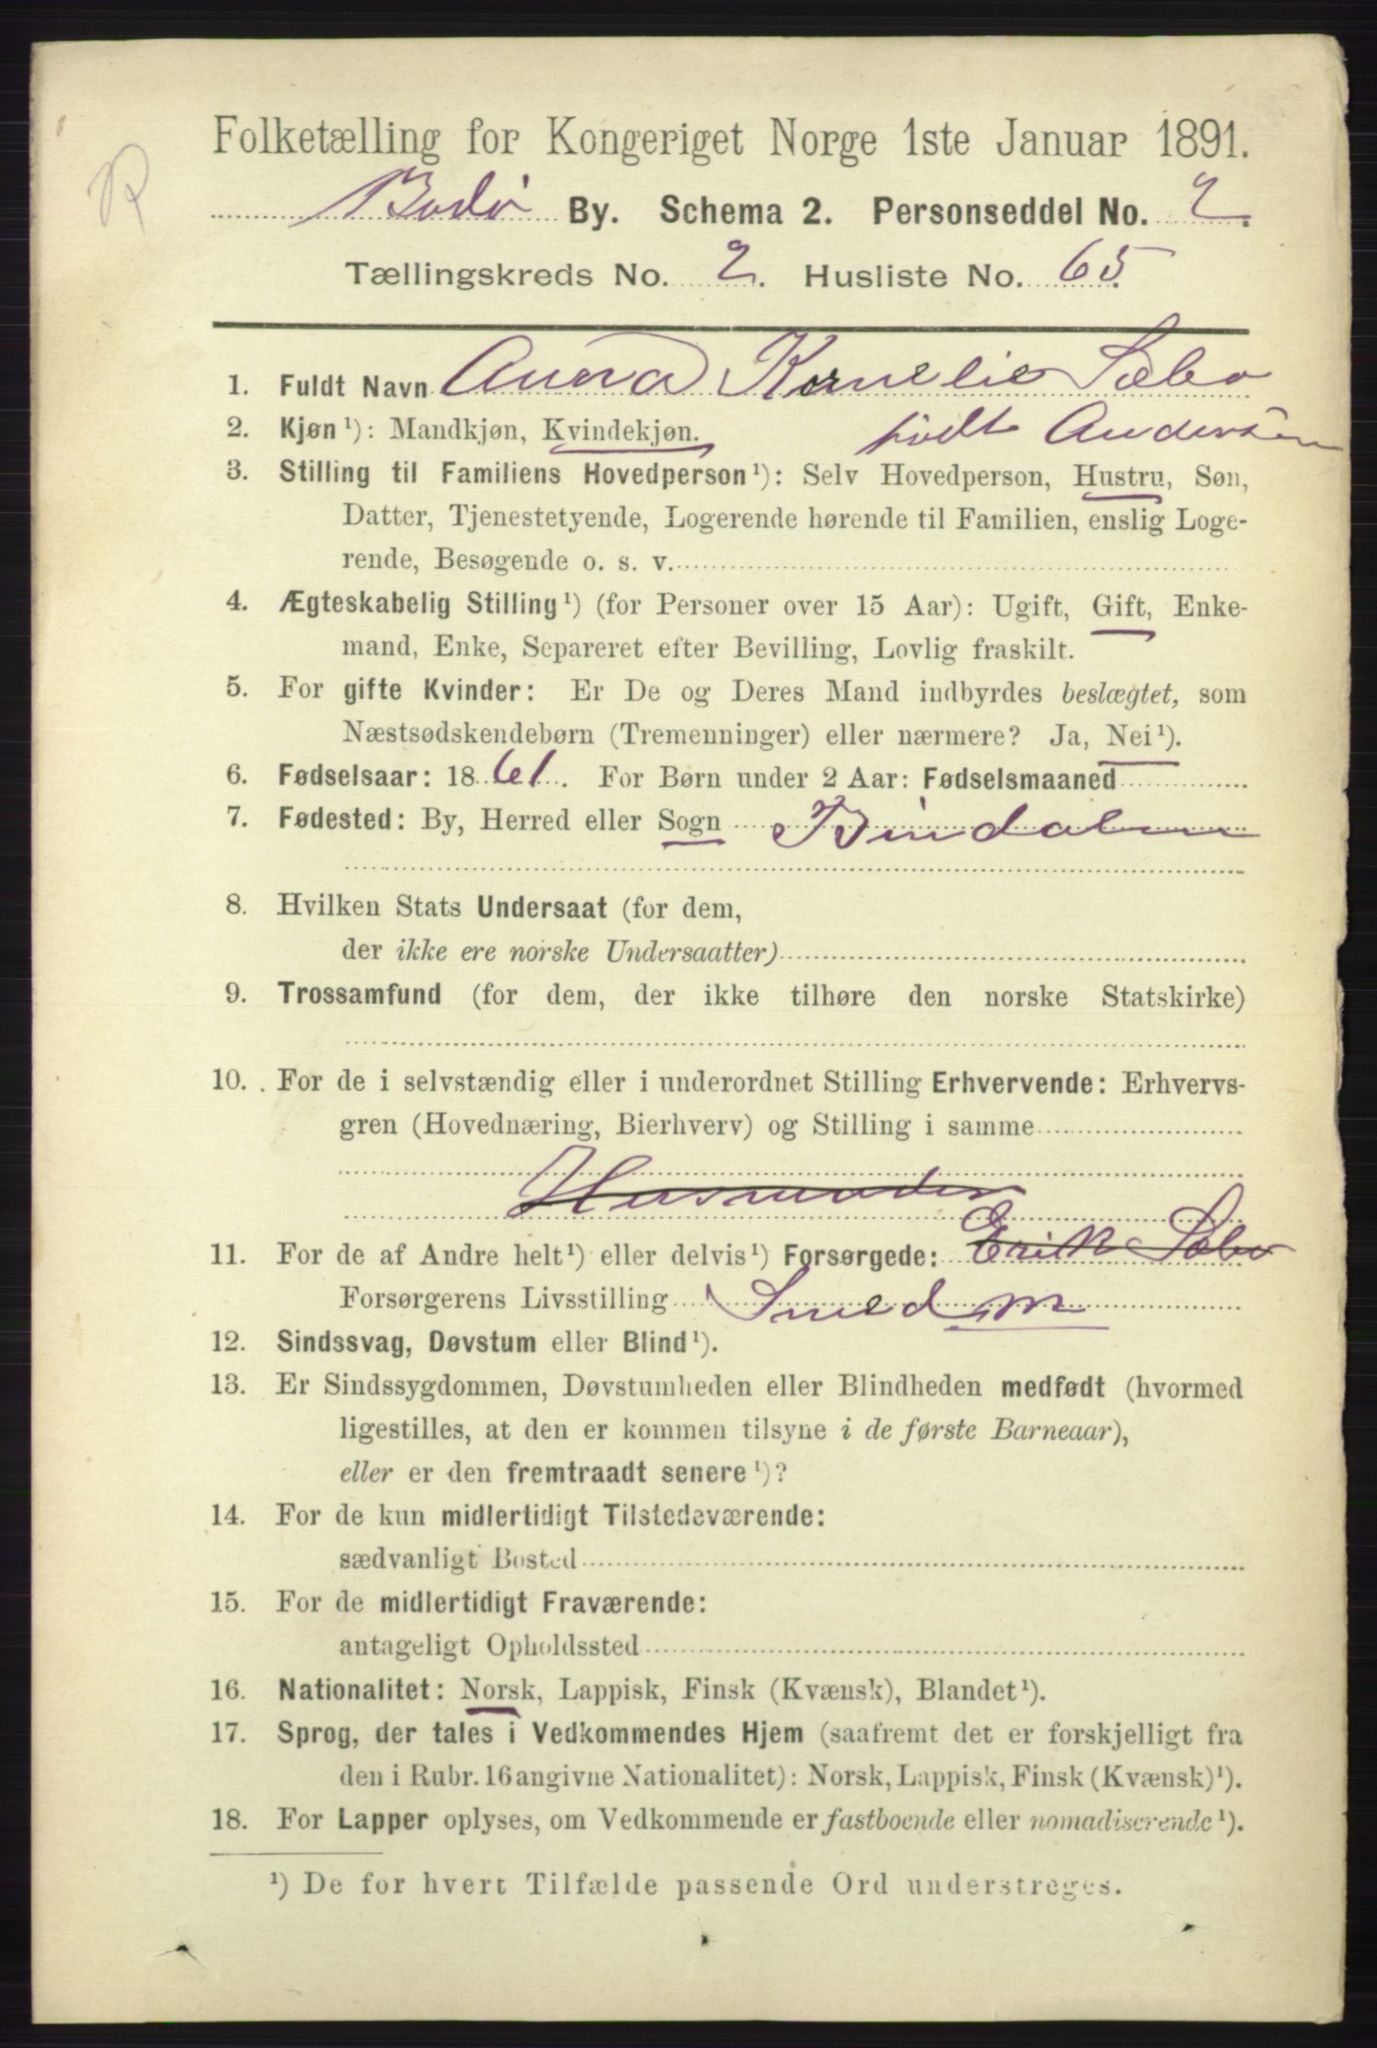 R
Folketælling for Kongeriget Norge 1ste Januar 1891.
Bodø By. Schema 2. Personseddel No. 2.
Tællingskreds No. 2. Husliste No. 65.
1. Fuldt Navn Anna Kornelie Sæbø
født Andersen
2. Kjøn¹): Mandkjøn, Kvindekjøn.
3. Stilling til Familiens Hovedperson¹): Selv Hovedperson, Hustru, Søn,
Datter, Tjenestetyende, Logerende hørende til Familien, enslig Loge-
rende, Besøgende o. s. v.
4. Ægteskabelig Stilling¹) (for Personer over 15 Aar): Ugift, Gift, Enke-
mand, Enke, Separeret efter Bevilling, Lovlig fraskilt.
5. For gifte Kvinder: Er De og Deres Mand indbyrdes beslægtet, som
Næstsødskendebørn (Tremenninger) eller nærmere? Ja, Nei¹).
6. Fødselsaar: 1861. For Børn under 2 Aar: Fødselsmaaned
7. Fødested: By, Herred eller Sogn Bindalen
8. Hvilken Stats Undersaat (for dem,
der ikke ere norske Undersaatter)
9. Trossamfund (for dem, der ikke tilhøre den norske Statskirke)
10. For de i selvstændig eller i underordnet Stilling Erhvervende: Erhvervs-
gren (Hovednæring, Bierhverv) og Stilling i samme
Husmoder
11. For de af Andre helt¹) eller delvis¹) Forsørgede: Erik Sæbø
Forsørgerens Livsstilling Smed m
12. Sindssvag, Døvstum eller Blind¹).
13. Er Sindssygdommen, Døvstumheden eller Blindheden medfødt (hvormed
ligestilles, at den er kommen tilsyne i de første Barneaar),
eller er den fremtraadt senere¹)?
14. For de kun midlertidigt Tilstedeværende:
sædvanligt Bosted
15. For de midlertidigt Fraværende:
antageligt Opholdssted
16. Nationalitet: Norsk, Lappisk, Finsk (Kvænsk), Blandet¹).
17. Sprog, der tales i Vedkommendes Hjem (saafremt det er forskjelligt fra
den i Rubr. 16 angivne Nationalitet): Norsk, Lappisk, Finsk (Kvænsk)¹).
18. For Lapper oplyses, om Vedkommende er fastboende eller nomadiserende¹).
¹) De for hvert Tilfælde passende Ord understreges.